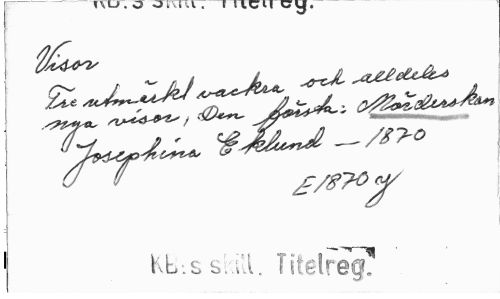 KB:s skill. Titelreg.
Visor
Tre utmärkt vackra och alldeles
nya visor, Den första: Mörderskan
Josephina Eklund — 1870
E1870y
KB:s skill. Titelreg.